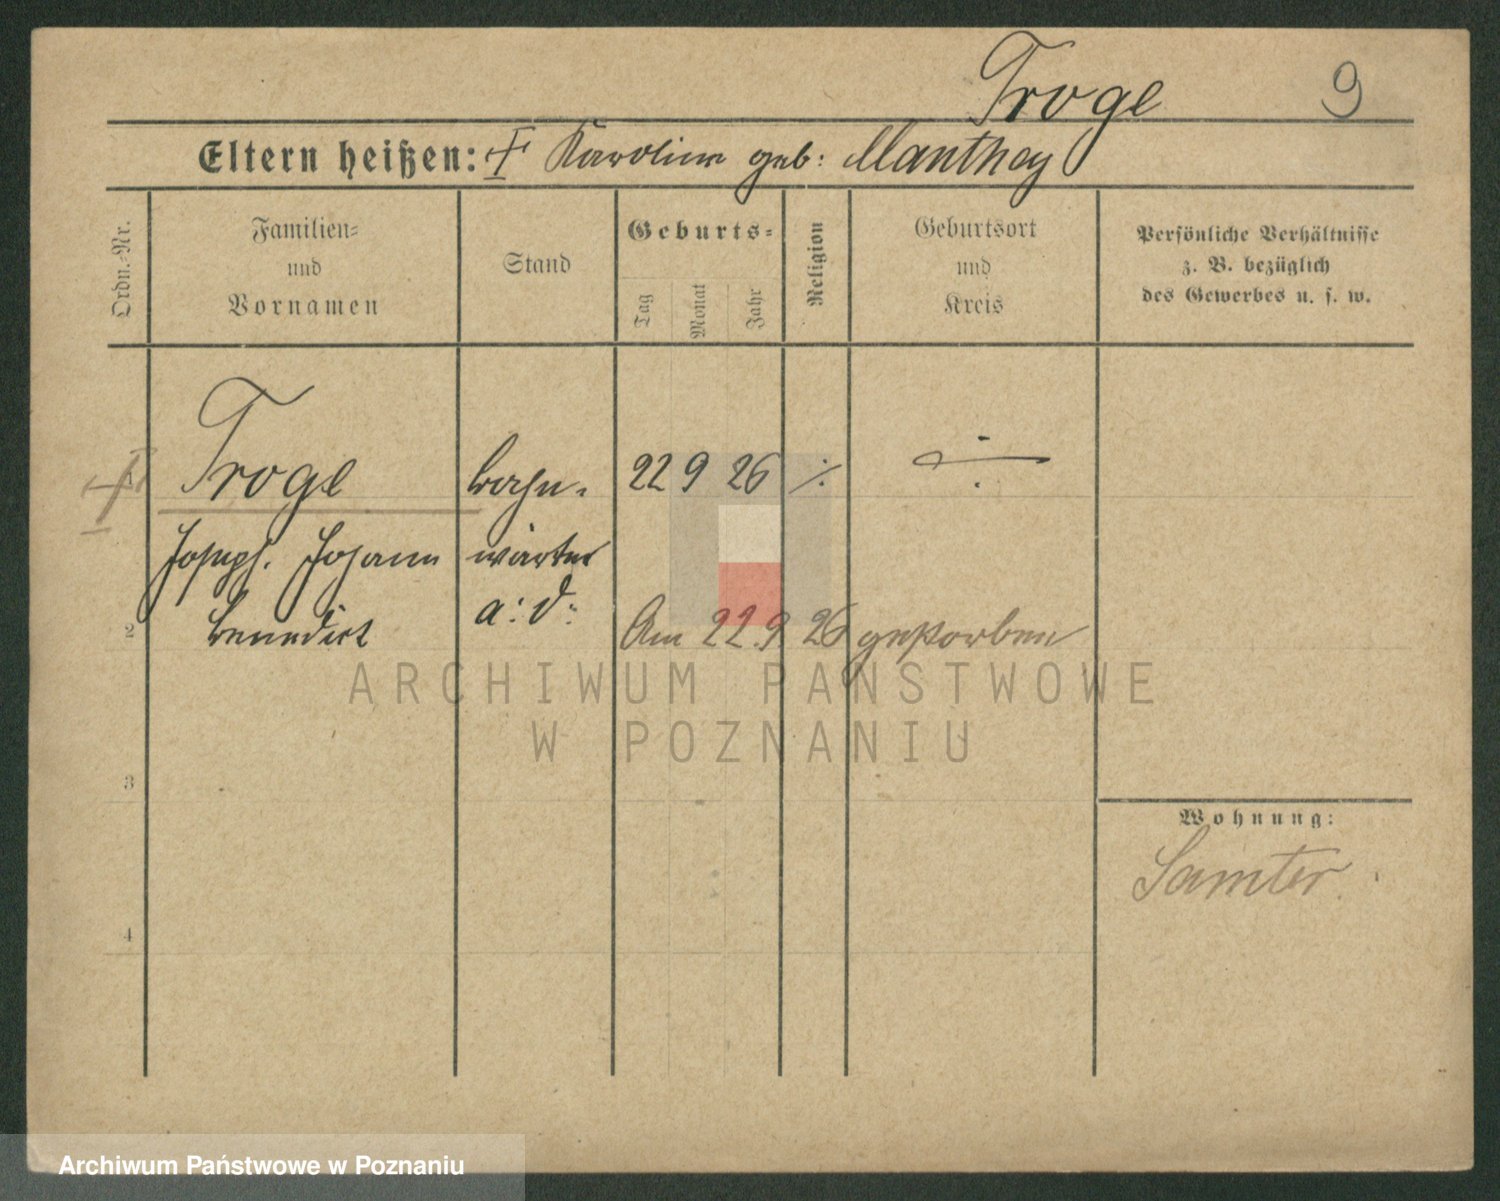 Troge 9
Eltern heißen: + Karoline geb: Manthey
Ordn.-Nr.
Familien-
und
Vornamen
Stand
Geburts-
Tag
Monat
Jahr
Religion
Geburtsort
und
Kreis
Persönliche Verhältnisse
z. B. bezüglich
des Gewerbes u. s. w.
Troge Bahn- 22 9 26 ·/· ÷
Joseph. Johann wärter
Benedict a: D:
2 Am 22.9 26 gestorben
ARCHIWUM PAŃSTWOWE
W POZNANIU
3
Wohnung:
Samter.
4
Archiwum Państwowe w Poznaniu